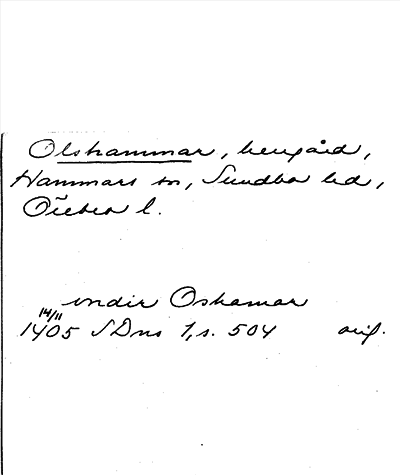 Olshammar, herrgård,
Hammars sn, Sundbo hd,
Örebro l.
vndir Oskamar
14/11
1405 SDns 1, s. 504 orig.